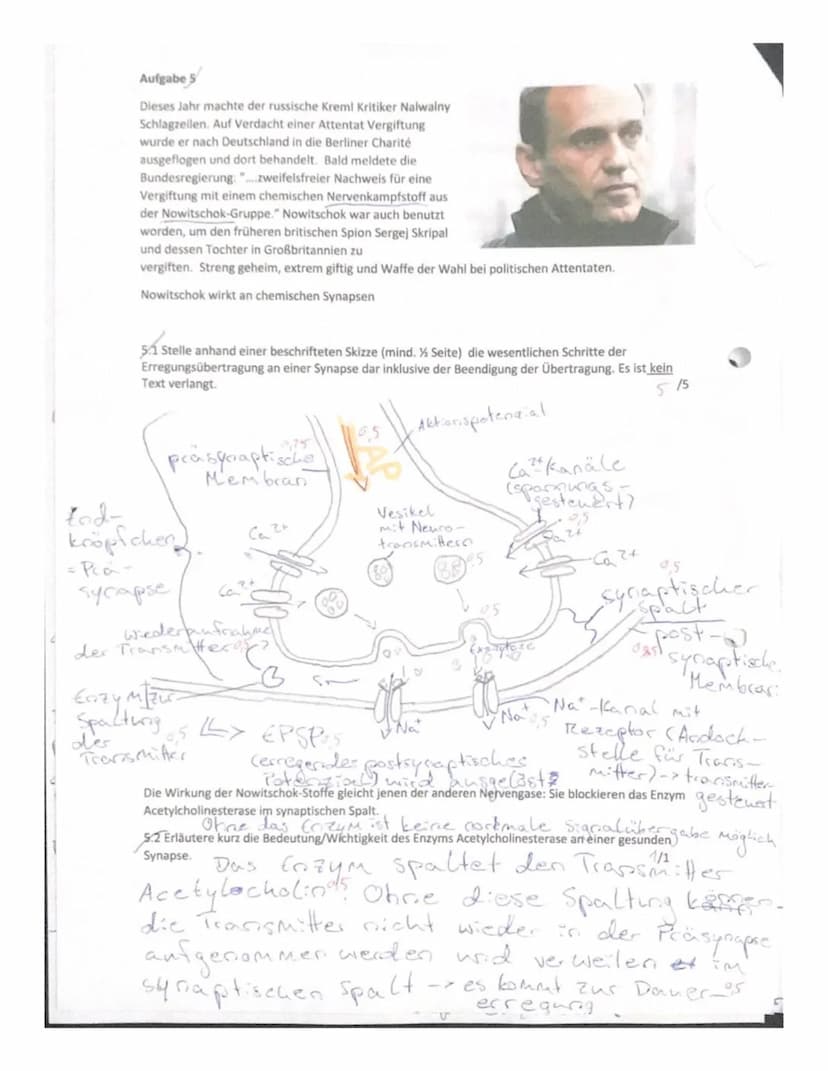 Aufgabe 5
Dieses Jahr machte der russische Kreml Kritiker Nalwalny
Schlagzeilen. Auf Verdacht einer Attentat Vergiftung
wurde er nach Deutschland in die Berliner Charité
ausgeflogen und dort behandelt. Bald meldete die
Bundesregierung: "....zweifelsfreier Nachweis für eine
Vergiftung mit einem chemischen Nervenkampfstoff aus
der Nowitschok-Gruppe." Nowitschok war auch benutzt
worden, um den früheren britischen Spion Sergej Skripal
und dessen Tochter in Großbritannien zu
vergiften. Streng geheim, extrem giftig und Waffe der Wahl bei politischen Attentaten.
Nowitschok wirkt an chemischen Synapsen
5.1 Stelle anhand einer beschrifteten Skizze (mind. ½ Seite) die wesentlichen Schritte der
Erregungsübertragung an einer Synapse dar inklusive der Beendigung der Übertragung. Es ist kein
Text verlangt.
5 /5
Aktionspotenzial
0,5
AP
0,75
präsynaptische
Membran
Ca²⁺-Kanäle
(spannungs-
gesteuert)
0,5
Vesikel
mit Neuro-
transmittern
0,5
End-
köpfchen
= Prä-
synapse
Ca²⁺
Ca²⁺
Ca²⁺
Ca²⁺
0,5
synaptischer
spalt
0,5
Exozytose
Wiederaufnahme
der Transmitter 0,5
post-
synaptische
Membran
0,25
Enzym zur
Spaltung
der
Transmitter
0,5
Na⁺
Na⁺ 0,5
Na⁺-Kanal mit
Rezeptor (Andock-
stelle für Trans-
mitter) -> transmitter-
gesteuert
EPSP 0,5
(erregendes postsynaptisches
Potenzial) wird ausgelöst
Die Wirkung der Nowitschok-Stoffe gleicht jenen der anderen Nervengase: Sie blockieren das Enzym
Acetylcholinesterase im synaptischen Spalt.
Ohne das Enzym ist keine normale Signalübergabe möglich
5.2 Erläutere kurz die Bedeutung/Wichtigkeit des Enzyms Acetylcholinesterase an einer gesunden
Synapse.
1/1
Das Enzym spaltet den Transmitter
Acetylcholin 0,5. Ohne diese Spaltung können
die Transmitter nicht wieder in der Präsynapse
aufgenommen werden und verweilen im
synaptischen Spalt -> es kommt zur Dauer- 0,5
erregung